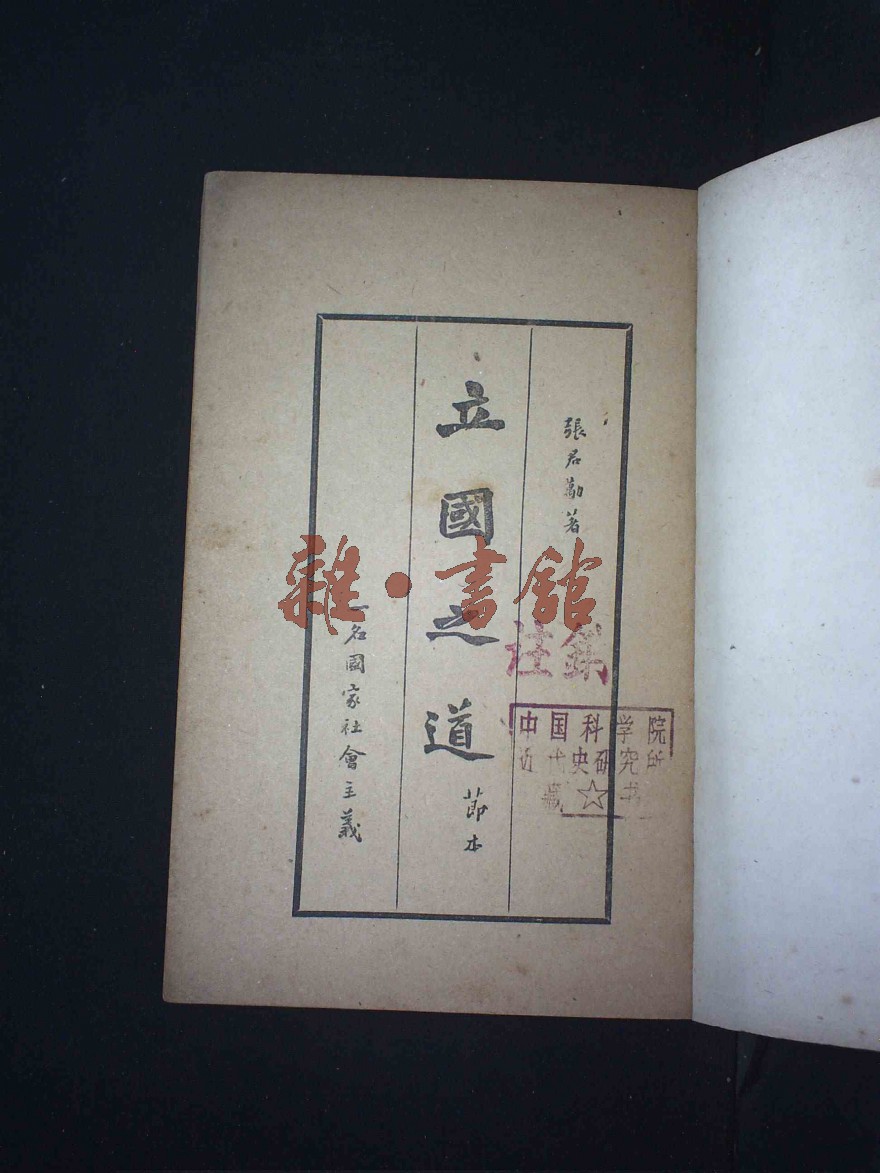 張君勱著
立國之道
節本
一名國家社會主義
雜·書館
注銷
中国科学院
近代史研究所
藏☆书